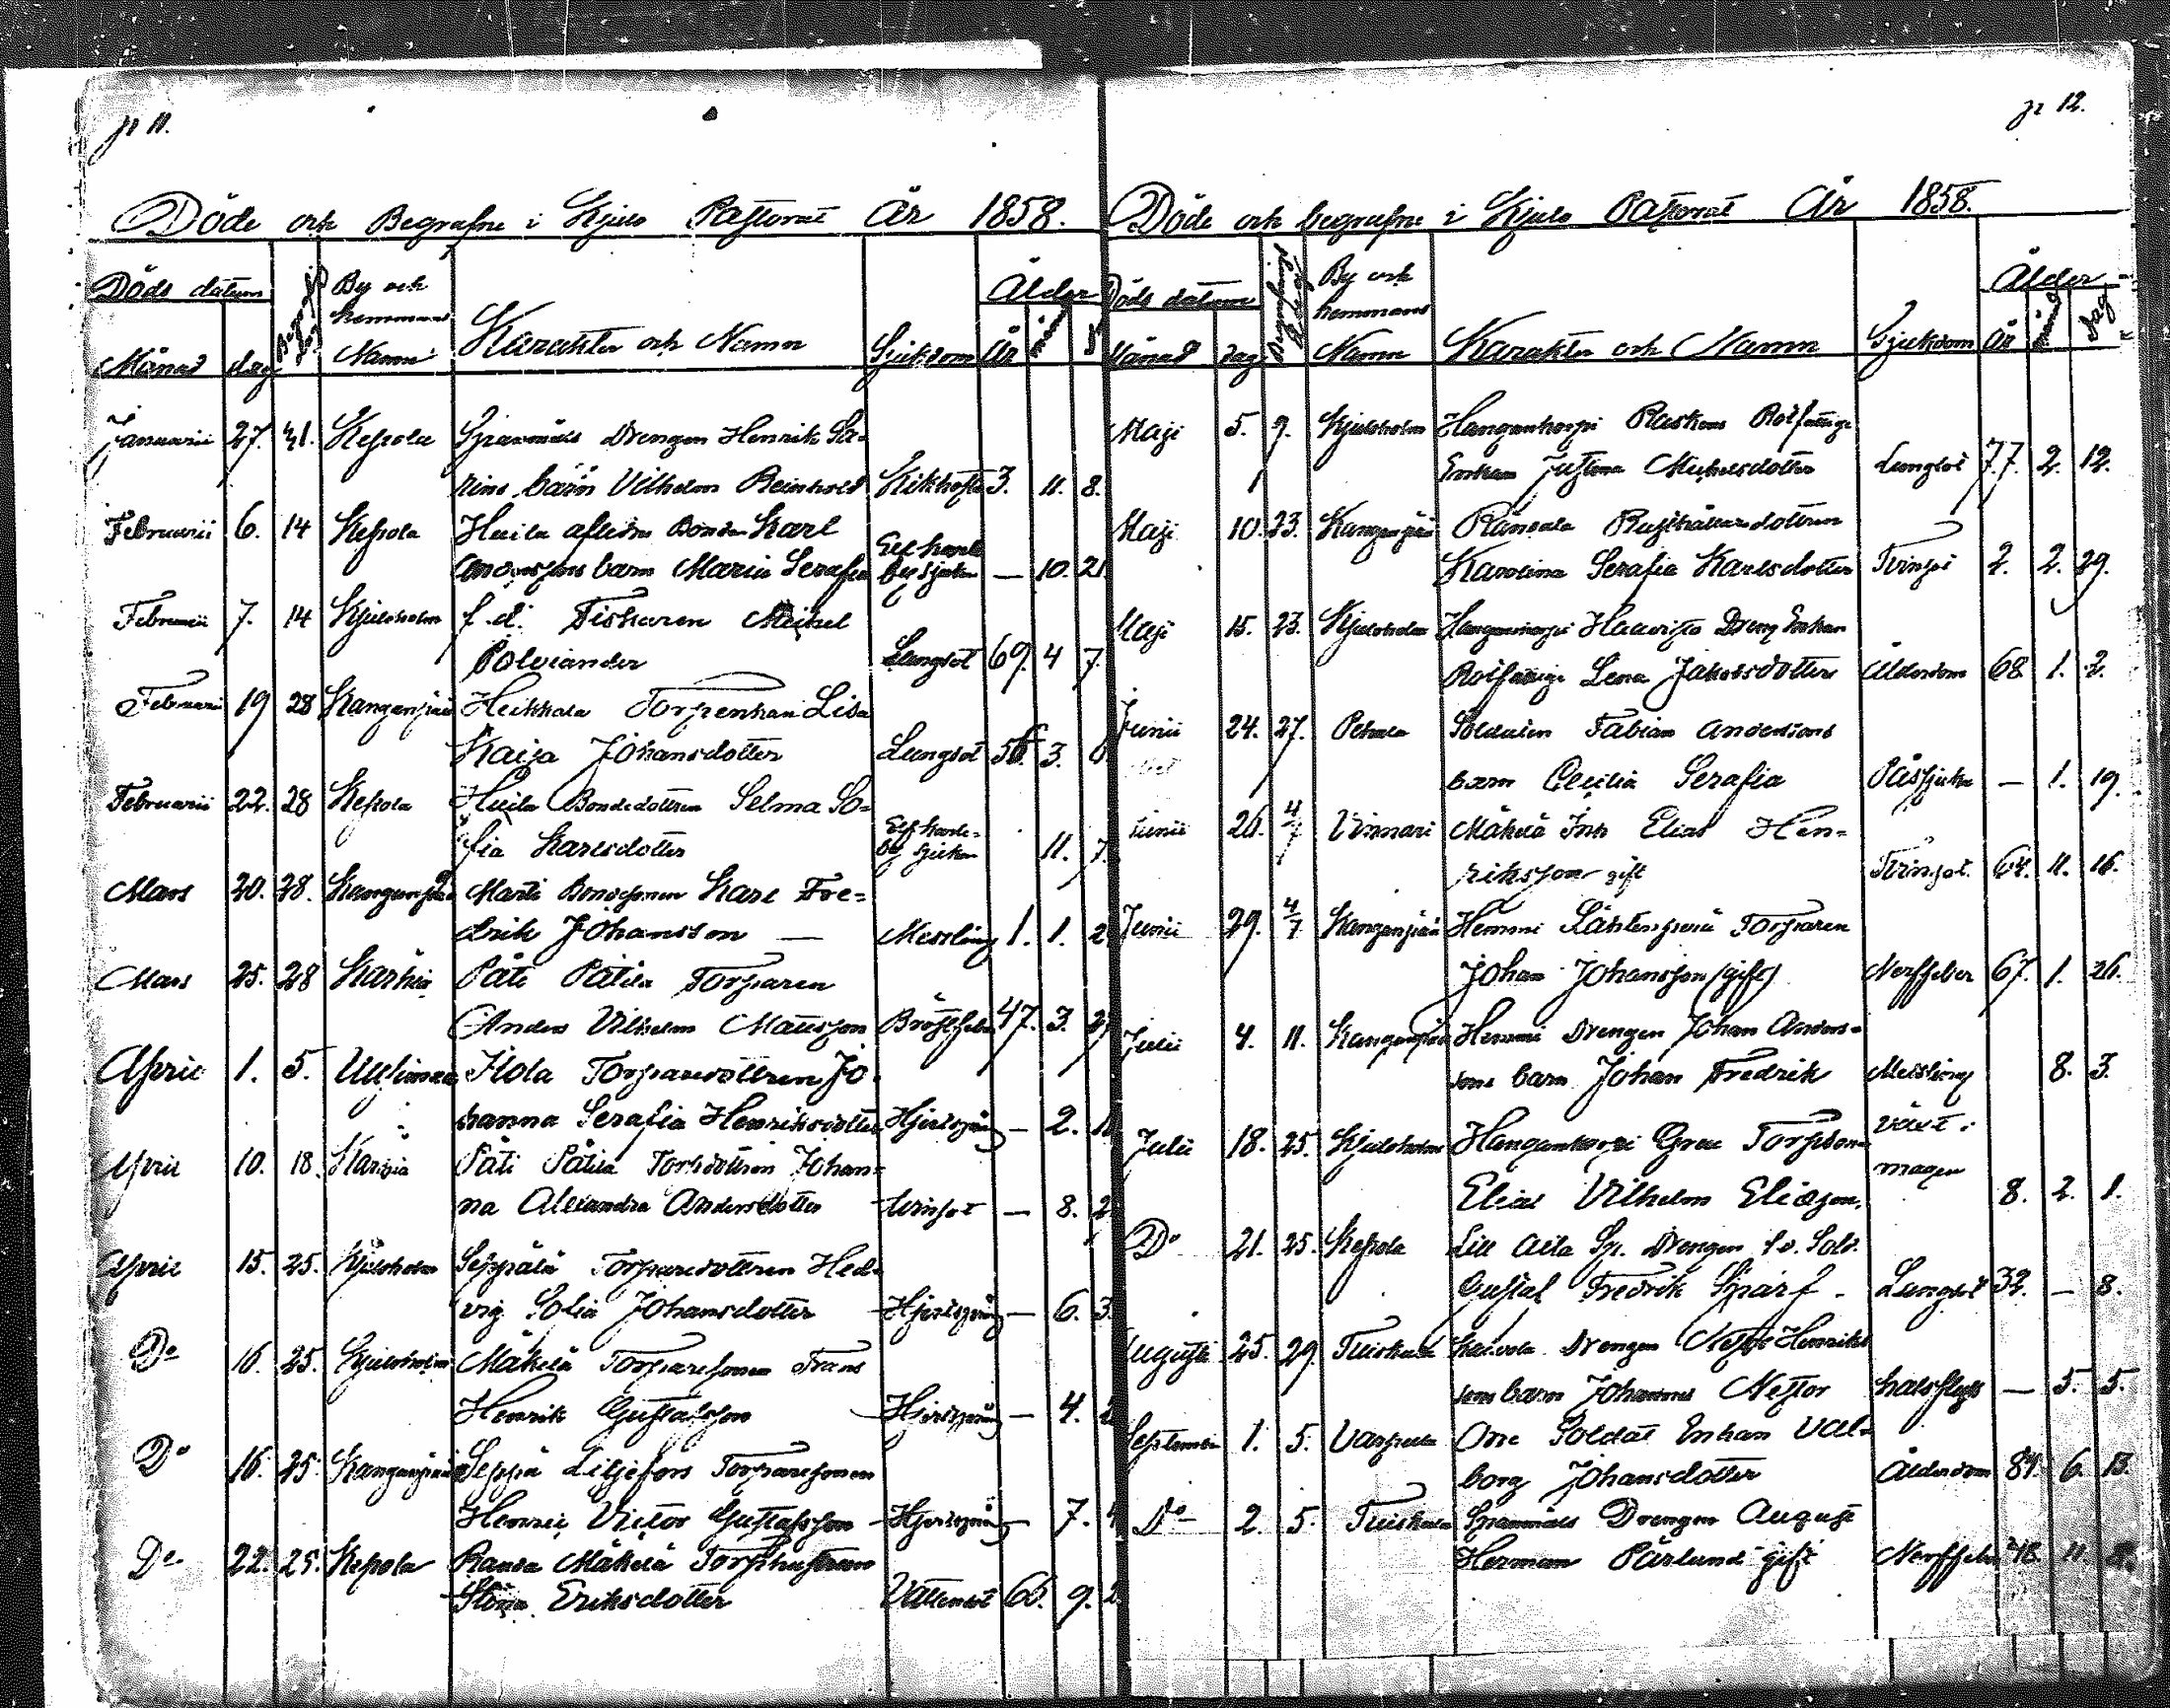 p: 11.
Döde och Begrafne i Kjulo Pastorat År 1858.
Döds datum
By och
hemmans
Namn
Månad dag
Karakter och Namn
Sjukdom
Ålder
År
Januarii 27. 31. Kepola Spannäls Drengen Henrik Ka-
rins barn Vilhelm Reinhold Kikhosta 3. 11. 8.
Februarii 6. 14 Kepola Huila aflidne Bonden Karl
Anderssons barn Maria Serafia — 10. 21.
Februarii 7. 14 Kjuloholm f. d. Fiskaren Mikel
Polviander Lungsot 69. 4 7.
Februarii 19 28 Kanganpää Heikkala Torpenkan Lisa
Kaisa Johansdotter Lungsot 3.
Februarii 22. 28 Kepola Huila Bondedottren Selma So-
fia Karlsdotter 11. 7.
Mars 20. 28. Kanganpää Martti Bondesonen Karl Fre-
drik Johansson — Messling 1. 1. 2
Mars 25. 28 Karhia Päti Pätilä Torparen
Anders Vilhelm Mattsson Bröstfeber 47. 3.
April 1. 5. Uttinmaa Kola Torparedottren Jo-
hanna Serafia Henriksdotter Hjertspång — 2.
April 10. 18. Karhia Päti Pätilä Torpdottren Johan-
na Alexandra Andersdotter tvinsot — 8. 2
April 15. 25. Kjuloholm Seppälä Torparedottren Hed-
vig Sofia Johansdotter Hjertspång — 6. 3.
Do 16. 25. Kjuloholm Mäkelä Torparesonen Frans
Henrik Gustafsson Hjertspång — 4. 2
Do 16. 25. Kanganpää Seppä Liljefors Torparesonen
Henric Victor Gustafsson Hjertspång — 7. 4
Do 22. 25. Kepola Ranta Mäkelä Torphustrun
Eriksdotter Vattensot 66. 9. 2.
p: 12.
Döde och begrafne i Kjulo Pastorat År 1858.
Döds datum
Begrafnings
dag
By och
hemmans
Namn
Månad dag
Karakter och Namn
Sjukdom
Ålder
År månad dag
Maji 5. 9. Kjuloholm Hangankorpi Raskens Rotfattige
Enkan Justina Michelsdotter Lungsot 77. 2. 12.
Maji 10. 23. Kanganpää Rusthållaredottren
Karolina Serafia Karlsdotter Tvinsot 2. 2. 29.
Maji 15. 23. Kjuloholm Hangankorpi Haavisto Dreng Enkan
Rotfattige Lena Jakobsdotter Ålderdom 68. 1. 2.
Junii 24. 27. Soldaten Fabian Anderssons
barn Cecilia Serafia — 1. 19.
Junii 26. 4/7 Vinnari Mäkelä Inh Elias Hen-
riksson gift Tvinsot. 64. 11. 16.
Junii 29. 4/7 Kanganpää Hemmi Lähtenperä Torparen
Johan Johansson (gift) Nerffeber 67. 1. 26.
Julii 4. 11. Kanganpää Hemmi Drengen Johan Anders-
sons barn Johan Fredrik Messling 8. 3.
Julii 18. 25. Kjuloholm Hangankorpi Greu Torpson
Elias Vilhelm Eliasson. värk i
magen 8. 2. 1.
Do 21. 25. Kepola Lill Aila Sp. Drengen f.d. Sold.
Gustaf Fredrik Sparf - Lungsot 32. — 8.
Augusti 25. 29. Tuiskula Kaivola Drengen Nestor Henriks
sons barn Johannes Nestor halsfluss — 5. 5.
September 1. 5. Varpula Orre Soldat Enkan Val-
borg Johansdotter Ålderdom 84. 6. 13.
Do 2. 5. Tuiskula Spannäls Drengen August
Herman Pärlund gift Nerffeber 48. 11.